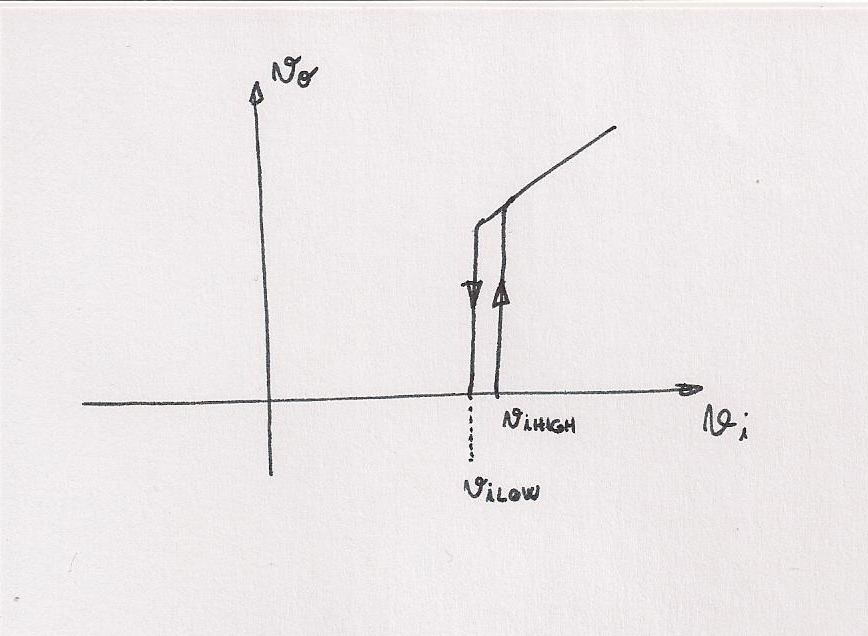 vo
viHIGH
vi
viLOW